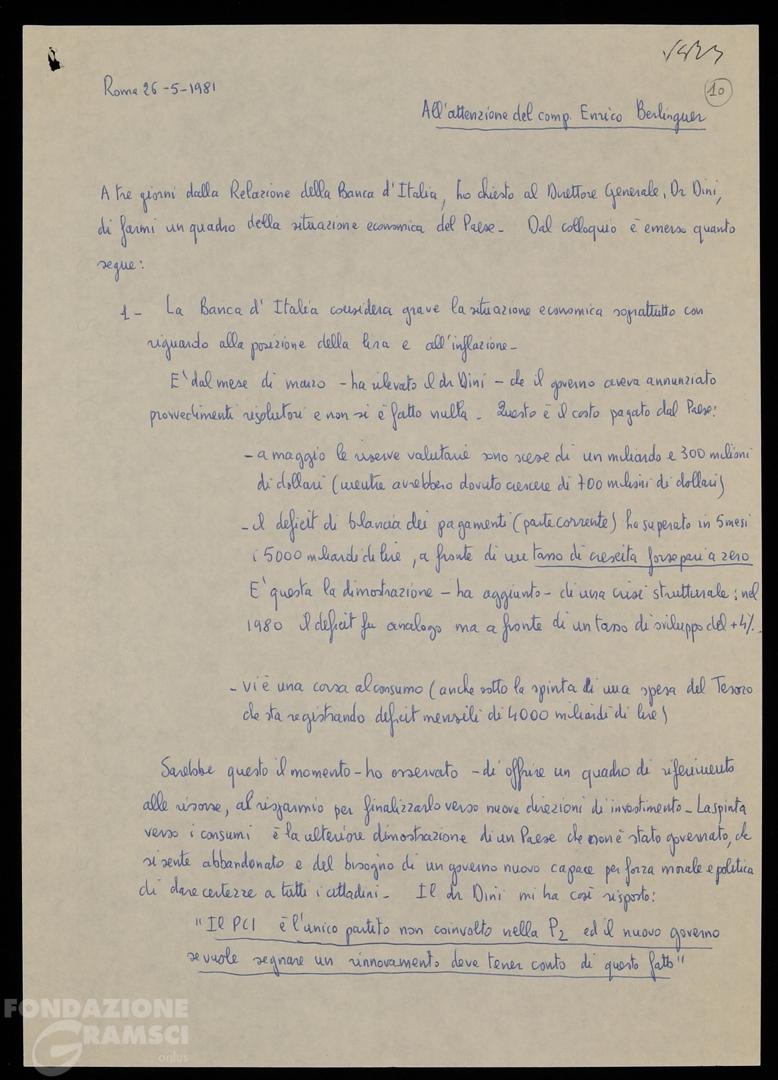 1823
10
Roma 26-5-1981
All'attenzione del comp. Enrico Berlinguer
A tre giorni dalla Relazione della Banca d'Italia, ho chiesto al Direttore Generale, Dr Dini,
di farmi un quadro della situazione economica del Paese - Dal colloquio è emerso quanto
segue:
1 - La Banca d'Italia considera grave la situazione economica soprattutto con
riguardo alla posizione della lira e all'inflazione -
E' dal mese di marzo - ha rilevato il dr Dini - che il governo aveva annunziato
provvedimenti risolutori e non si è fatto nulla - Questo è il costo pagato dal Paese:
- a maggio le riserve valutarie sono scese di un miliardo e 300 milioni
di dollari (mentre avrebbero dovuto crescere di 700 milioni di dollari)
- il deficit di bilancia dei pagamenti (parte corrente) ha superato in 5 mesi
i 5000 miliardi di lire, a fronte di un tasso di crescita forse pari a zero
E' questa la dimostrazione - ha aggiunto - di una crisi strutturale; nel
1980 il deficit fu analogo ma a fronte di un tasso di sviluppo del +4% -
- vi è una corsa al consumo (anche sotto la spinta di una spesa del Tesoro
che sta registrando deficit mensili di 4000 miliardi di lire)
Sarebbe questo il momento - ho osservato - di offrire un quadro di riferimento
alle risorse, al risparmio per finalizzarlo verso nuove direzioni di investimento - La spinta
verso i consumi è la ulteriore dimostrazione di un Paese che non è stato governato, che
si sente abbandonato e del bisogno di un governo nuovo capace per forza morale e politica
di dare certezze a tutti i cittadini - Il dr Dini mi ha così risposto:
"Il PCI è l'unico partito non coinvolto nella P2 ed il nuovo governo
se vuole segnare un rinnovamento deve tener conto di questo fatto"
FONDAZIONE
GRAMSCI
onlus